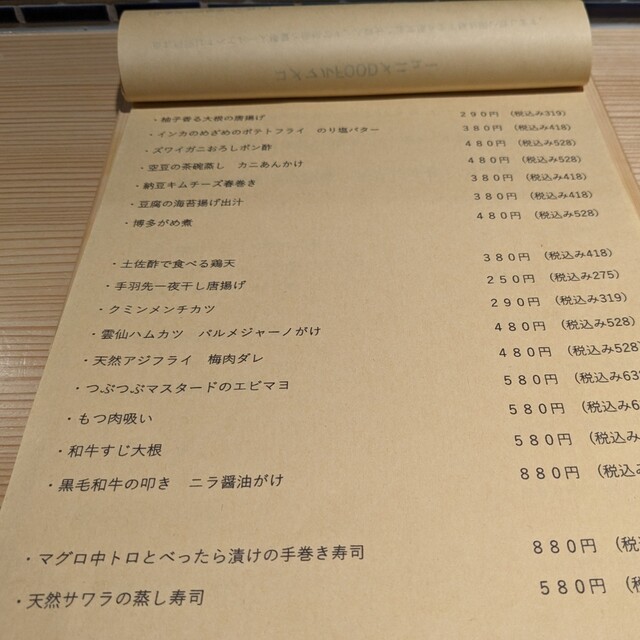 コメマルFOODメニュー
・柚子香る大根の唐揚げ 290円 (税込み319)
・インカのめざめのポテトフライ のり塩バター 380円 (税込み418)
・ズワイガニおろしポン酢 480円 (税込み528)
・空豆の茶碗蒸し カニあんかけ 480円 (税込み528)
・納豆キムチーズ春巻き 380円 (税込み418)
・豆腐の海苔揚げ出汁 380円 (税込み418)
・博多がめ煮 480円 (税込み528)
・土佐酢で食べる鶏天 380円 (税込み418)
・手羽先一夜干し唐揚げ 250円 (税込み275)
・クミンメンチカツ 290円 (税込み319)
・雲仙ハムカツ パルメジャーノがけ 480円 (税込み528)
・天然アジフライ 梅肉ダレ 480円 (税込み528
・つぶつぶマスタードのエビマヨ 580円 (税込み63
・もつ肉吸い 580円 (税込み6
・和牛すじ大根 580円 (税込み
・黒毛和牛の叩き ニラ醤油がけ 880円 (税込み
・マグロ中トロとべったら漬けの手巻き寿司 880円 (税
・天然サワラの蒸し寿司 580円 (税